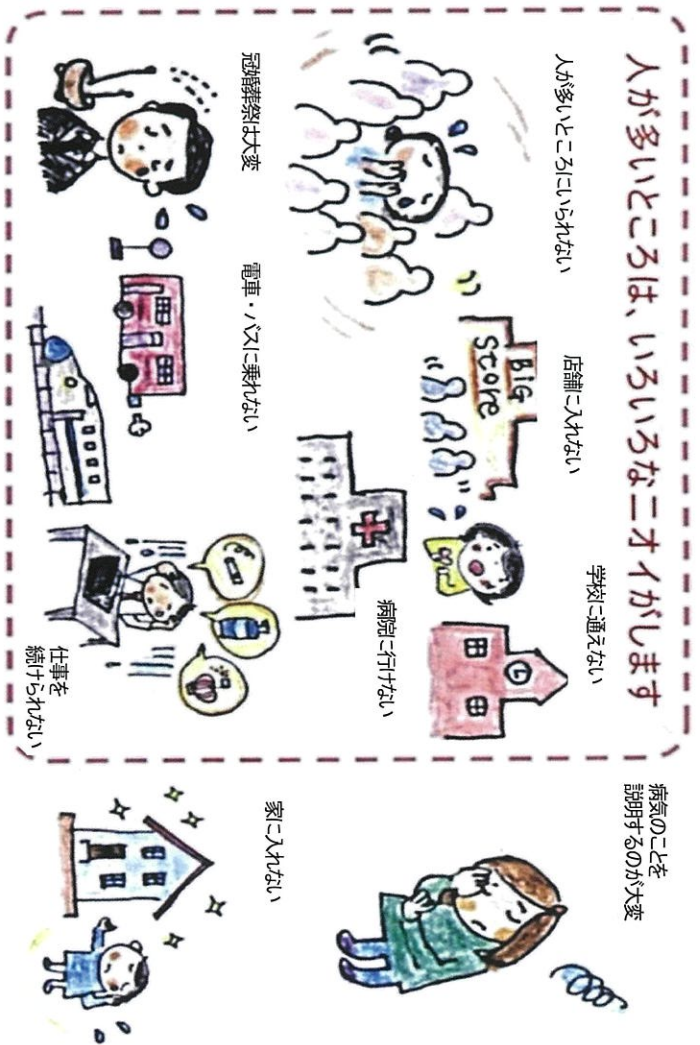 人が多いところは、いろいろなニオイがします
人が多いところにいられない
店舗に入れない
BiG
Store
学校に通えない
病院に行けない
冠婚葬祭は大変
電車・バスに乗れない
仕事を
続けられない
病気のことを
説明するのが大変
家に入れない